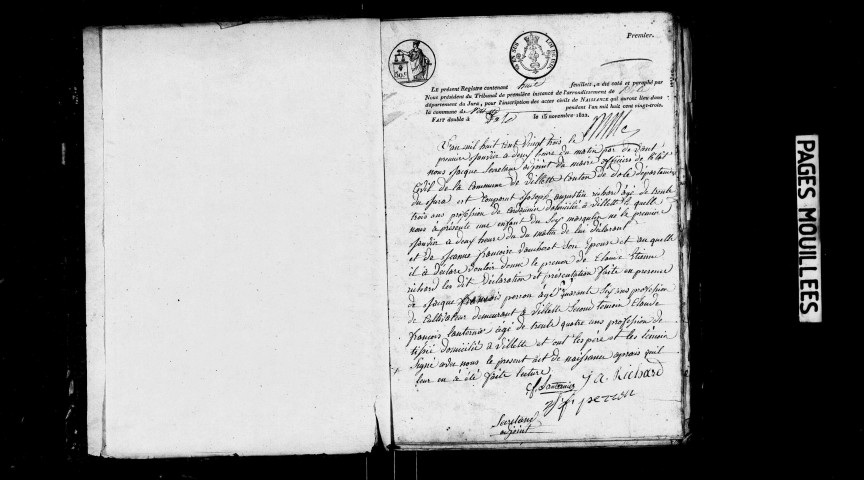 Premier.
LE présent Registre contenant huit feuillets, a été coté et paraphé par
Nous président du Tribunal de première instance de l'arrondissement de Dole
département du Jura, pour l'inscription des actes civils de NAISSANCE qui auront lieu dans
la commune de pendant l'an mil huit cent vingt-trois.
FAIT double à Dole le 15 novembre 1822.
L'an mil huit cent vingt trois le
premier janvier à deux heure du matin par de vant
nous jacque Secretan adjoint du maire officiers de l'état
Civil de la Commune de Villette Canton de Dole departement
du jura est Comparut joseph augustin richard âgé de trente
trois ans profession de domicilié à Villette le quelle
nous à présenté une enfant du Sex masqulin né le premier
janvier à deux heure du matin de lui déclarant
et de jeanne françoise Son Epouse et au quelle
il à déclaré vouloir donné le prenon de Claude Etienne
richard les dit Déclaration et présentation faite en presence
de jacque françois perron âgé quarante Six ans profession
de Cultivateur demeurant à Villette Second témoin Claude
françois Lanternier âgé de trente quatre ans profession de
domicilié à Villette et ont les père et les témoin
Signé avec nous le present act de naissance aprais quil
leur en à été faite lecture.
Cf Lanternier J A Richard
J f perron
Secretan
adjoint
PAGES MOUILLEES